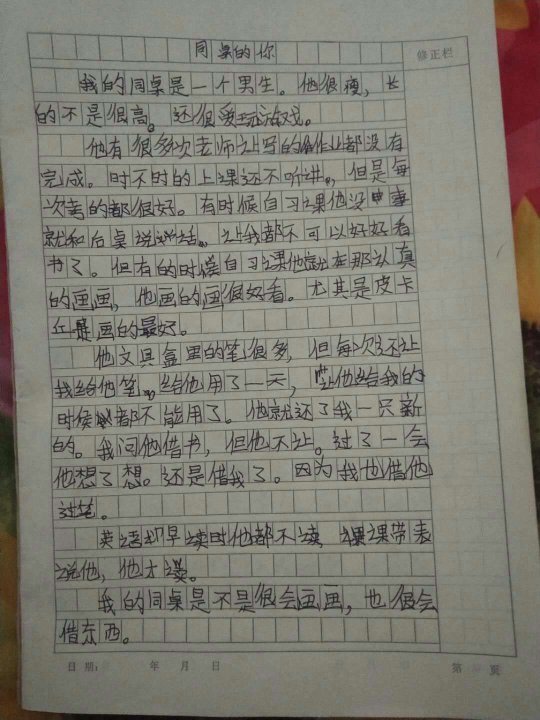 同桌的你
修正栏
我的同桌是一个男生。他很瘦，长
的不是很高。还很爱玩游戏。
他有很多次老师让写的作业都没有
完成。时不时的上课还不听讲，但是每
次考的都很好。有时候自习课他没事
就和后桌说说话，让我都不可以好好看
书了。但有的时候自习课他就在那认真
的画画，他画的画很好看。尤其是皮卡
丘是画的最好。
他文具盒里的笔很多，但每次还让
我给他笔，给他用了一天，等他给我的
时候都不能用了。他就还了我一只新
的。我问他借书，但他不让。过了一会
他想了想。还是借我了。因为我也借他
过笔。
英语早读时他都不读，课课带表
说他，他才读。
我的同桌是不是很会画画，也很会
借东西。
日期： 年 月 日
第 页